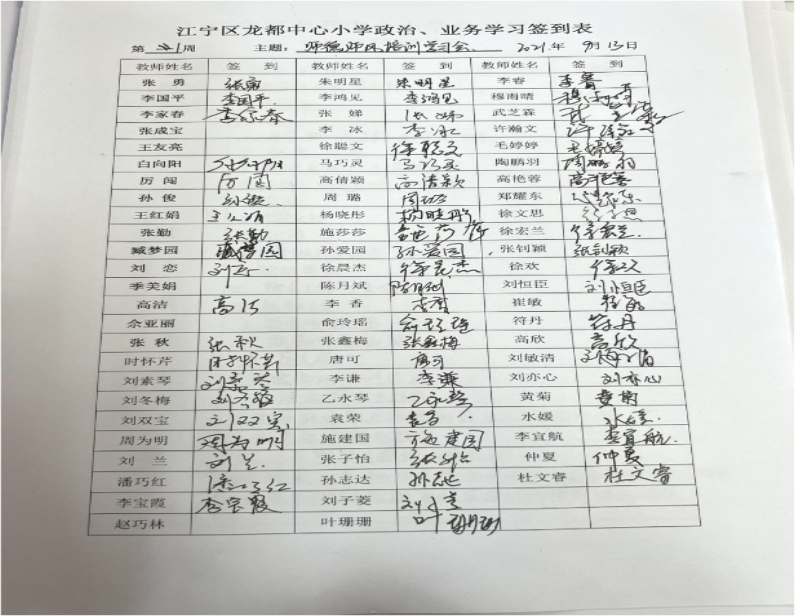 江宁区龙都中心小学政治、业务学习签到表
第 周 主题: 师德师风培训学习会. 2021.年 9月13日
教师姓名 签 到 教师姓名 签 到 教师姓名 签 到
张 勇 张勇 朱明星 朱明星 李睿 李睿
李国平 李国平. 李鸿见 李鸿见 穆雨晴 穆雨晴
李家春 李家春 张 娣 武芝霖
张成宝 李 冰 李冰 许瀚文
王友亮 徐聪文 徐聪文 毛婷婷 毛婷婷
白向阳 马巧灵 马巧灵 陶鹏羽 陶鹏羽
厉 闯 厉闯 高倩颖 高倩颖 高艳蓉 高艳蓉
孙 俊 孙俊 周 璐 周璐 郑耀东
王红娟 王红娟 杨晓彤 杨晓彤 徐文思
张勤 张勤 施莎莎 施莎莎 徐宏兰 徐宏兰
臧梦园 臧梦园 孙爱园 孙爱园 张钊颖 张钊颖
刘 恋 刘恋 徐晨杰 徐晨杰 徐欢 徐欢
季美娟 陈月斌 陈月斌 刘恒臣 刘恒臣
高洁 高洁 李 香 李香 崔敏 崔敏
佘亚丽 俞玲瑶 俞玲瑶 符丹 符丹
张 秋 张秋 张鑫梅 张鑫梅 高欣 高欣
时怀芹 时怀芹 唐可 唐可 刘敏清
刘素琴 刘素琴 李谦 李谦 刘亦心 刘亦心
刘冬梅 刘冬梅 乙永琴 乙永琴 黄菊 黄菊
刘双宝 刘双宝 袁荣 袁荣 水媛 水媛.
周为明 周为明 施建国 施建国 李宜航 李宜航.
刘 兰 刘兰. 张子怡 张子怡 仲夏 仲夏
潘巧红 潘巧红 孙志达 孙志达 杜文睿 杜文睿
李宝霞 李宝霞 刘子菱
赵巧林 叶珊珊 叶珊珊